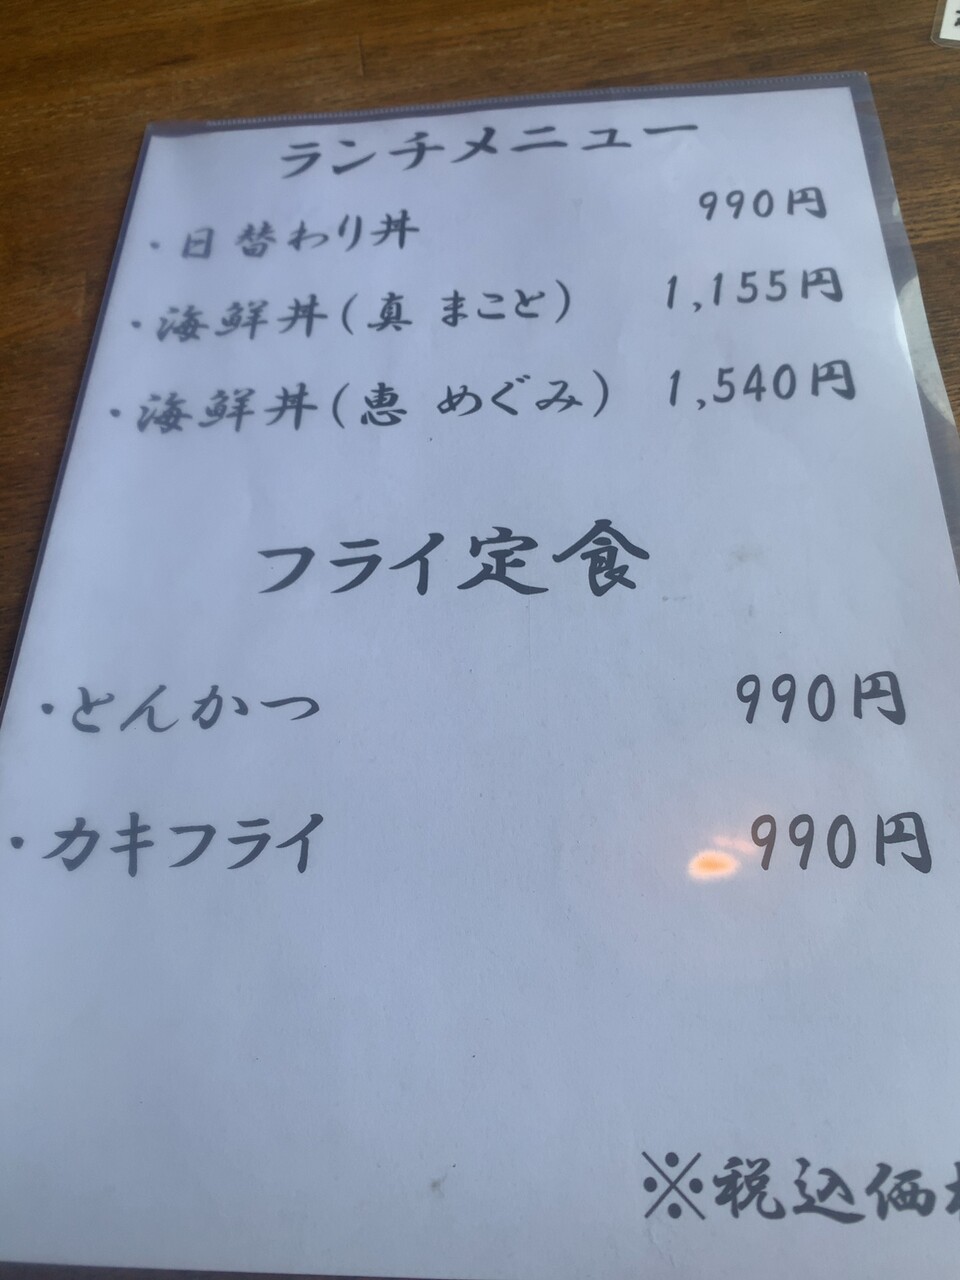 ランチメニュー
・日替わり丼 990円
・海鮮丼(真 まこと) 1,155円
・海鮮丼(恵 めぐみ) 1,540円
フライ定食
・とんかつ 990円
・カキフライ 990円
※税込価